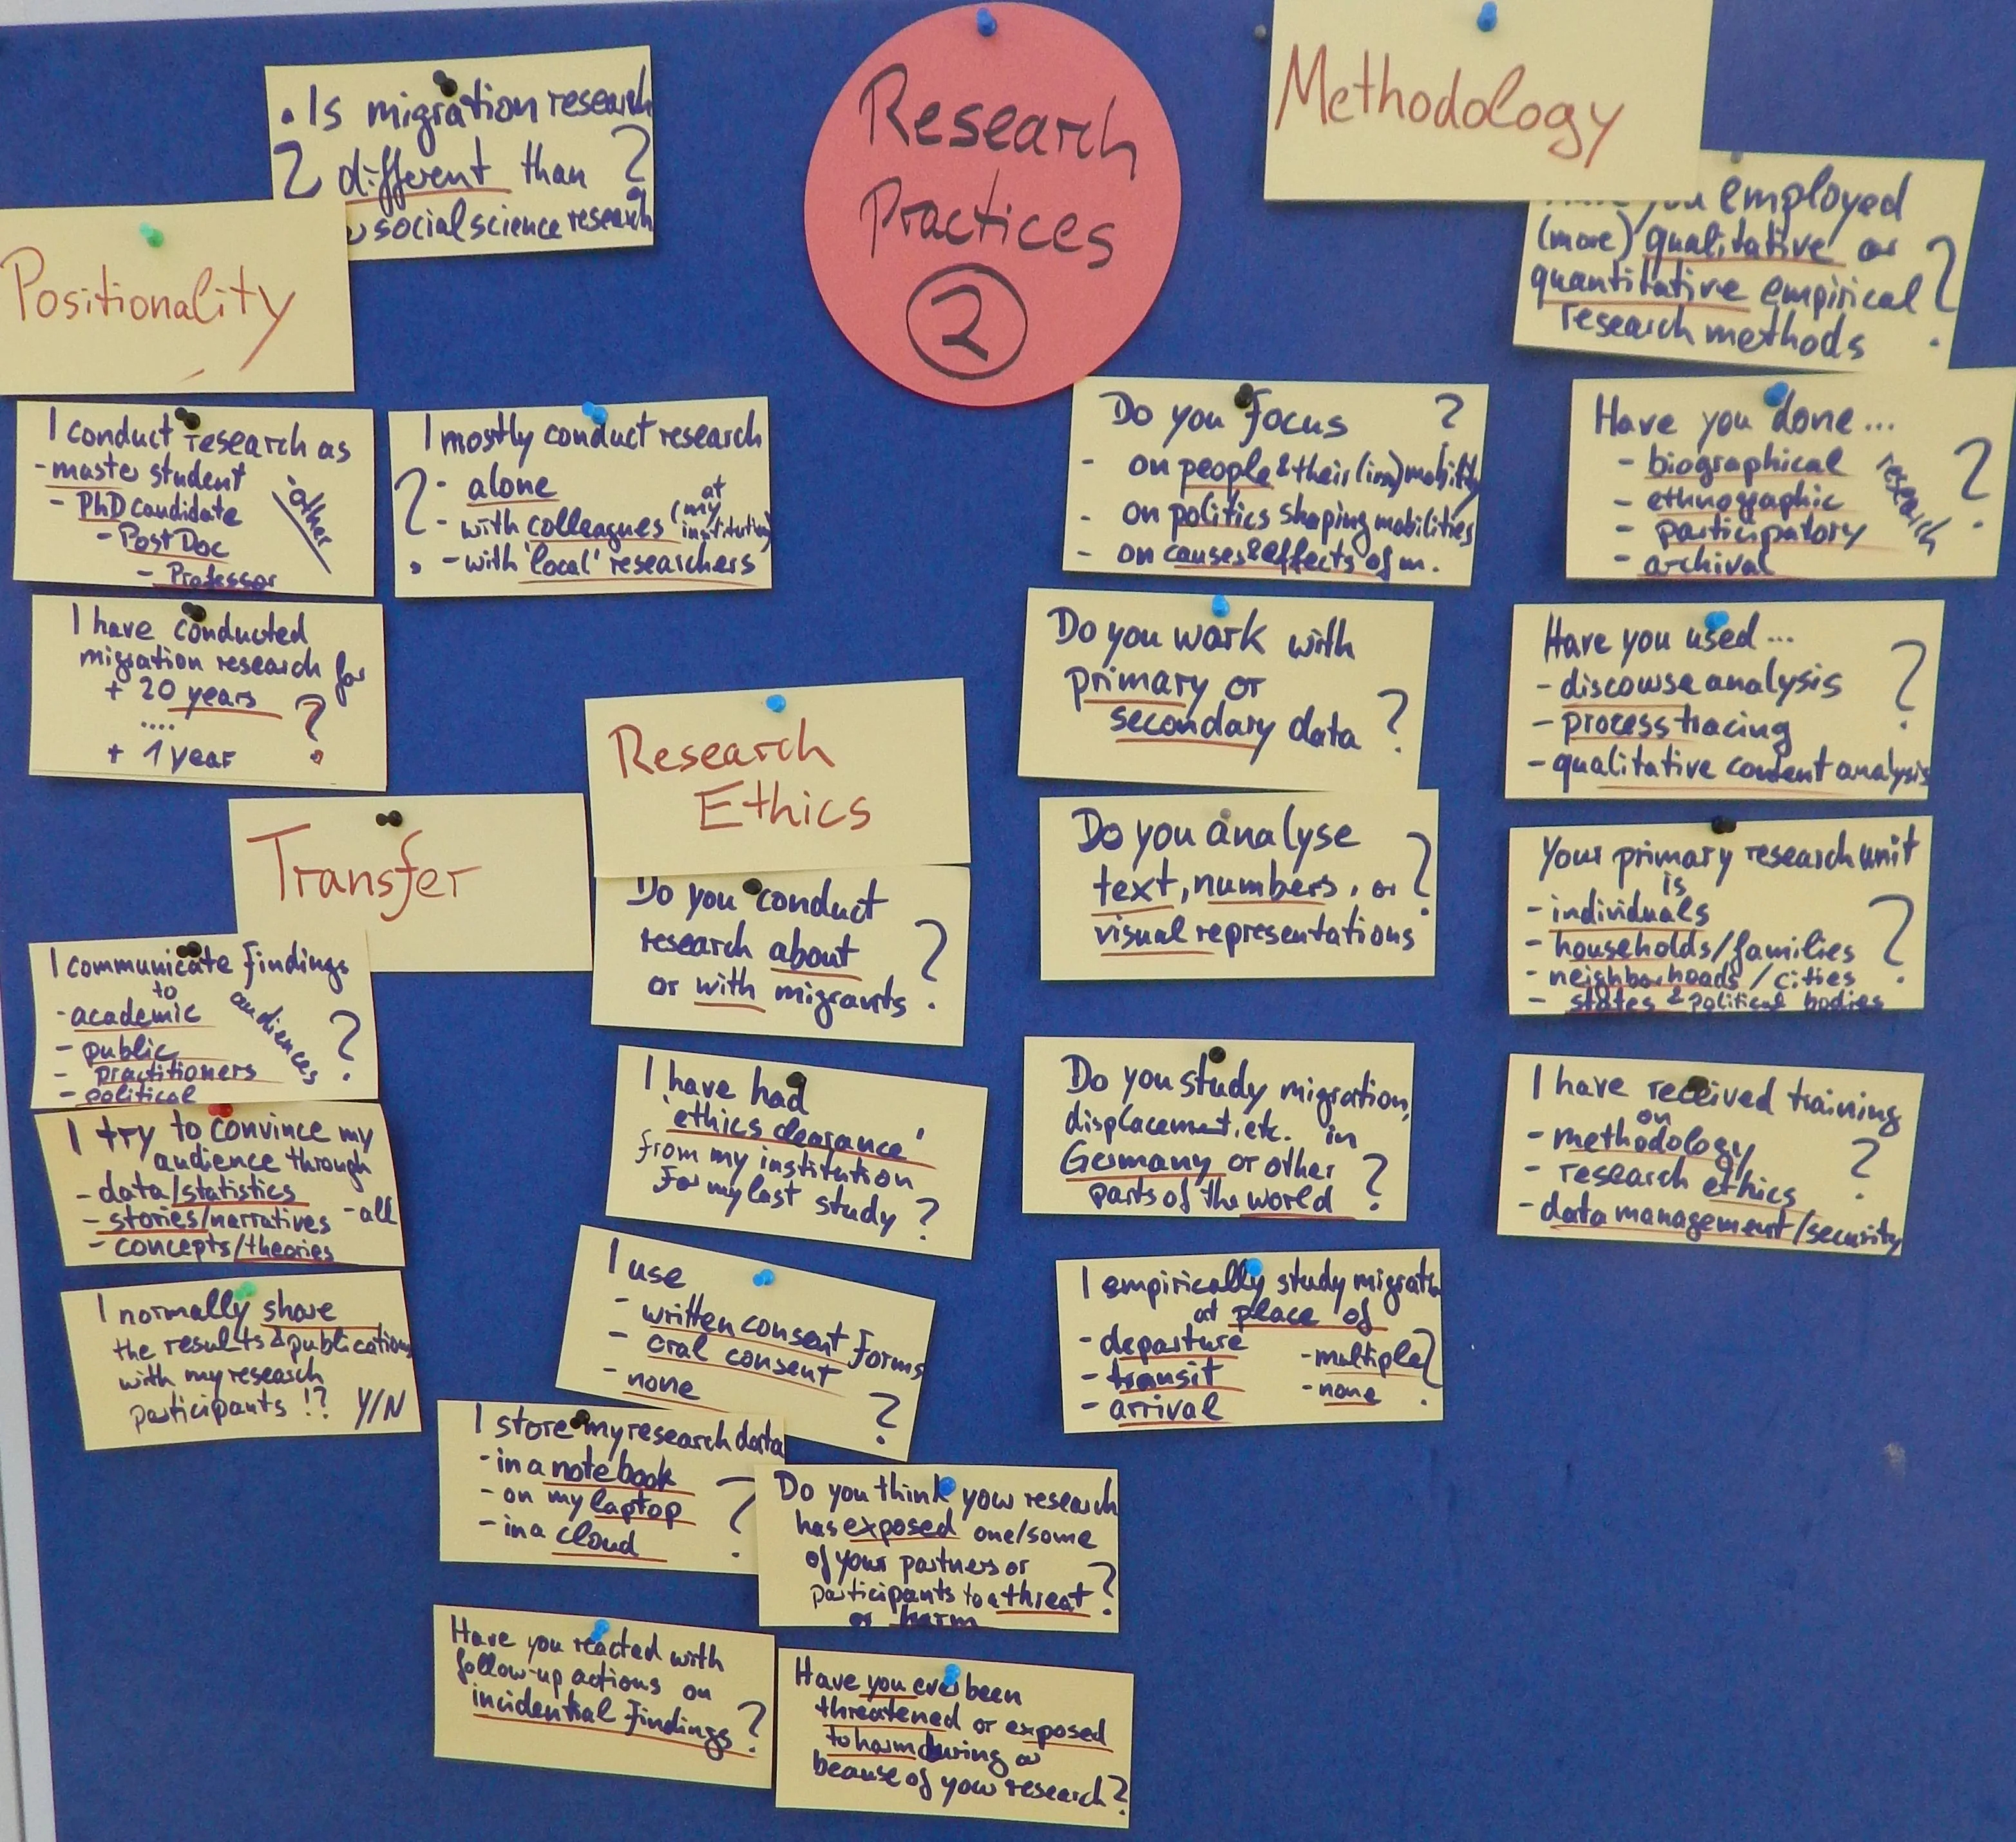 Research
Practices
2
• Is migration research
? different than ?
social science research
Positionality
I conduct research as
- master student
- PhD candidate
- Post Doc
- Professor
- other
I mostly conduct research
? - alone
- with colleagues (at my institution)
- with 'local' researchers
I have conducted
migration research for
+ 20 years ?
....
+ 1 year
Transfer
I communicate findings
to
- academic
- public
- practitioners
- political
audiences ?
I try to convince my
audience through
- data/statistics
- stories/narratives - all
- concepts/theories
I normally share
the results & publications
with my research
participants !? Y/N
Research
Ethics
Do you conduct
research about ?
or with migrants
I have had
'ethics clearance'
from my institution
for my last study ?
I use
- written consent forms
- oral consent
- none ?
I store my research data
- in a notebook
- on my laptop ?
- in a cloud
Do you think your research
has exposed one/some
of your partners or
participants to a threat ?
or harm
Have you reacted with
follow-up actions on
incidential findings ?
Have you ever been
threatened or exposed
to harm during or
because of your research ?
Methodology
you employed
(more) qualitative or
quantitative empirical ?
research methods
Do you focus ?
- on people & their (im)mobility
- on politics shaping mobilities
- on causes & effects of m.
Have you done...
- biographical
- ethnographic
- participatory
- archival
research ?
Do you work with
primary or
secondary data ?
Have you used...
- discourse analysis ?
- process tracing
- qualitative content analysis
Do you analyse
text, numbers, or ?
visual representations
Your primary research unit
is
- individuals
- households/families ?
- neighbourhoods/cities
- states & political bodies
Do you study migration,
displacement, etc. in
Germany or other
parts of the world ?
I have received training
on
- methodology
- research ethics ?
- data management/security
I empirically study migration
at place of
- departure
- transit
- arrival
- multiple ?
- none